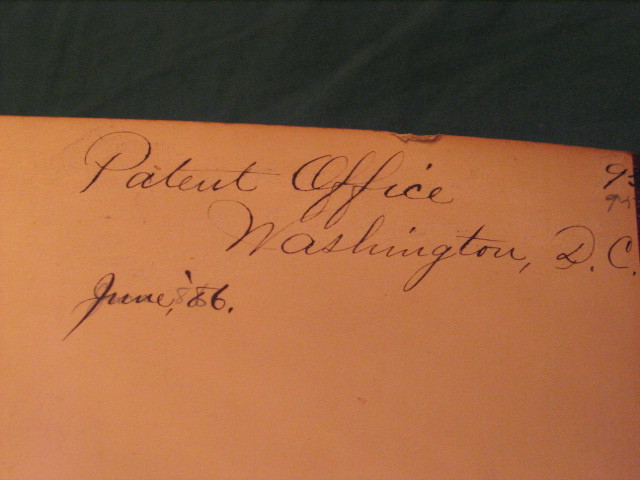 Patent Office
Washington, D.C.
June, '86.